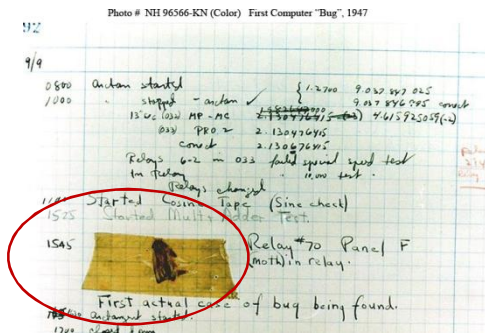 Photo # NH 96566-KN (Color) First Computer "Bug", 1947
92
9/9
0800 arctan started
1000 " stopped - arctan ✓
{ 1.2700 9.037 847 025
9.037 846 995 correct
13"UC (032) MP - MC 2.130476415 (-3) 4.615925059(-2)
(033) PRO 2 2.130476415
correct 2.130676415
Relays 6-2 in 033 failed special speed test
in relay " 10.000 test.
Relays changed
1100 Started Cosine Tape (Sine check)
1525 Started Multi Adder Test.
1545 Relay #70 Panel F
(moth) in relay.
First actual case of bug being found.
arctangent started.
1700 closed down.